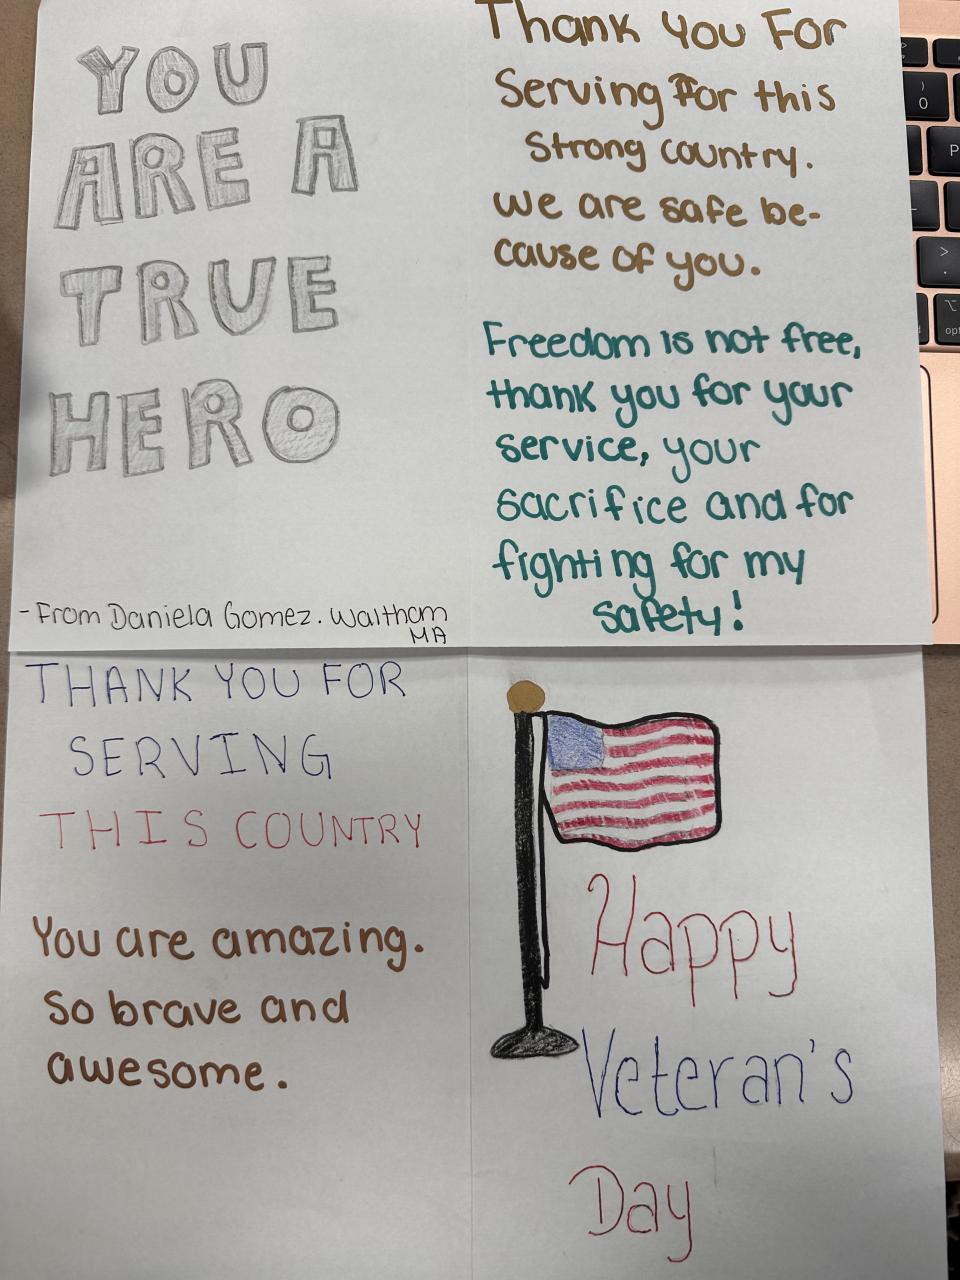 YOU
ARE A
TRUE
HERO
-From Daniela Gomez. Waltham
MA
Thank you For
Serving For this
Strong country.
We are safe be-
cause of you.
Freedom is not free,
thank you for your
service, your
sacrifice and for
fighting for my
safety!
THANK YOU FOR
SERVING
THIS COUNTRY
You are amazing.
So brave and
awesome.
Happy
Veteran's
Day
)
0
P
>
.
opt